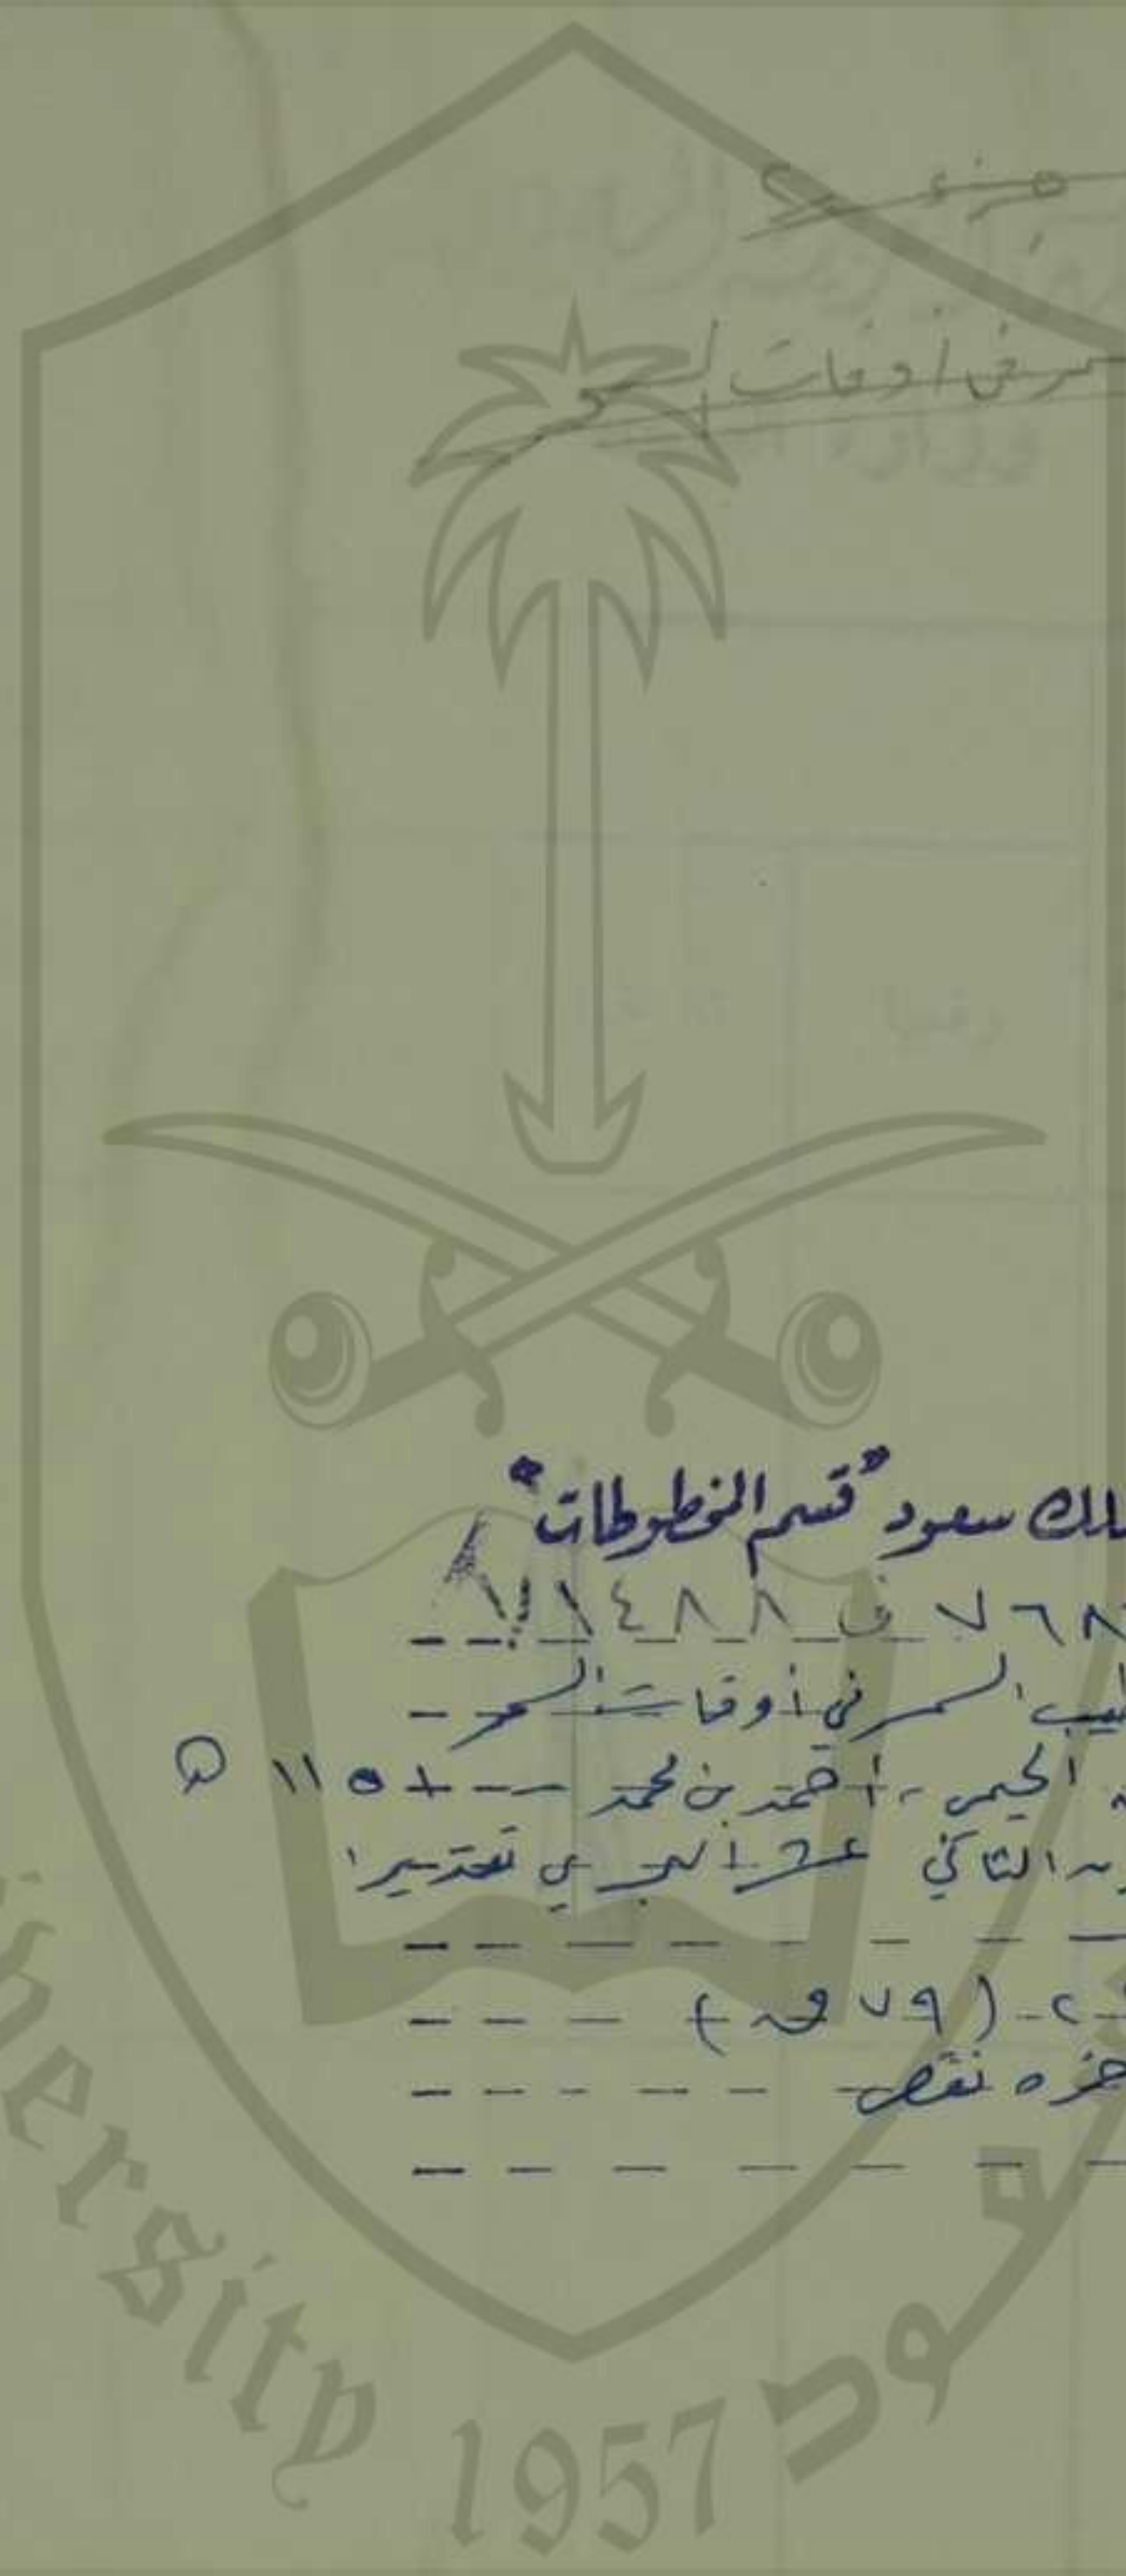 سر في اوقات السحر
لك سعود "قسم المخطوطات"
٧٦٨ ف ١٤٨٨
طيب السمر في أوقات السحر -
الحيمي - أحمد بن محمد - - ١١٥١ ه
الثاني عشر الهجري تقديرا
٢ - (٧٩ ق)
خره نقص
ersity 1957
سعود